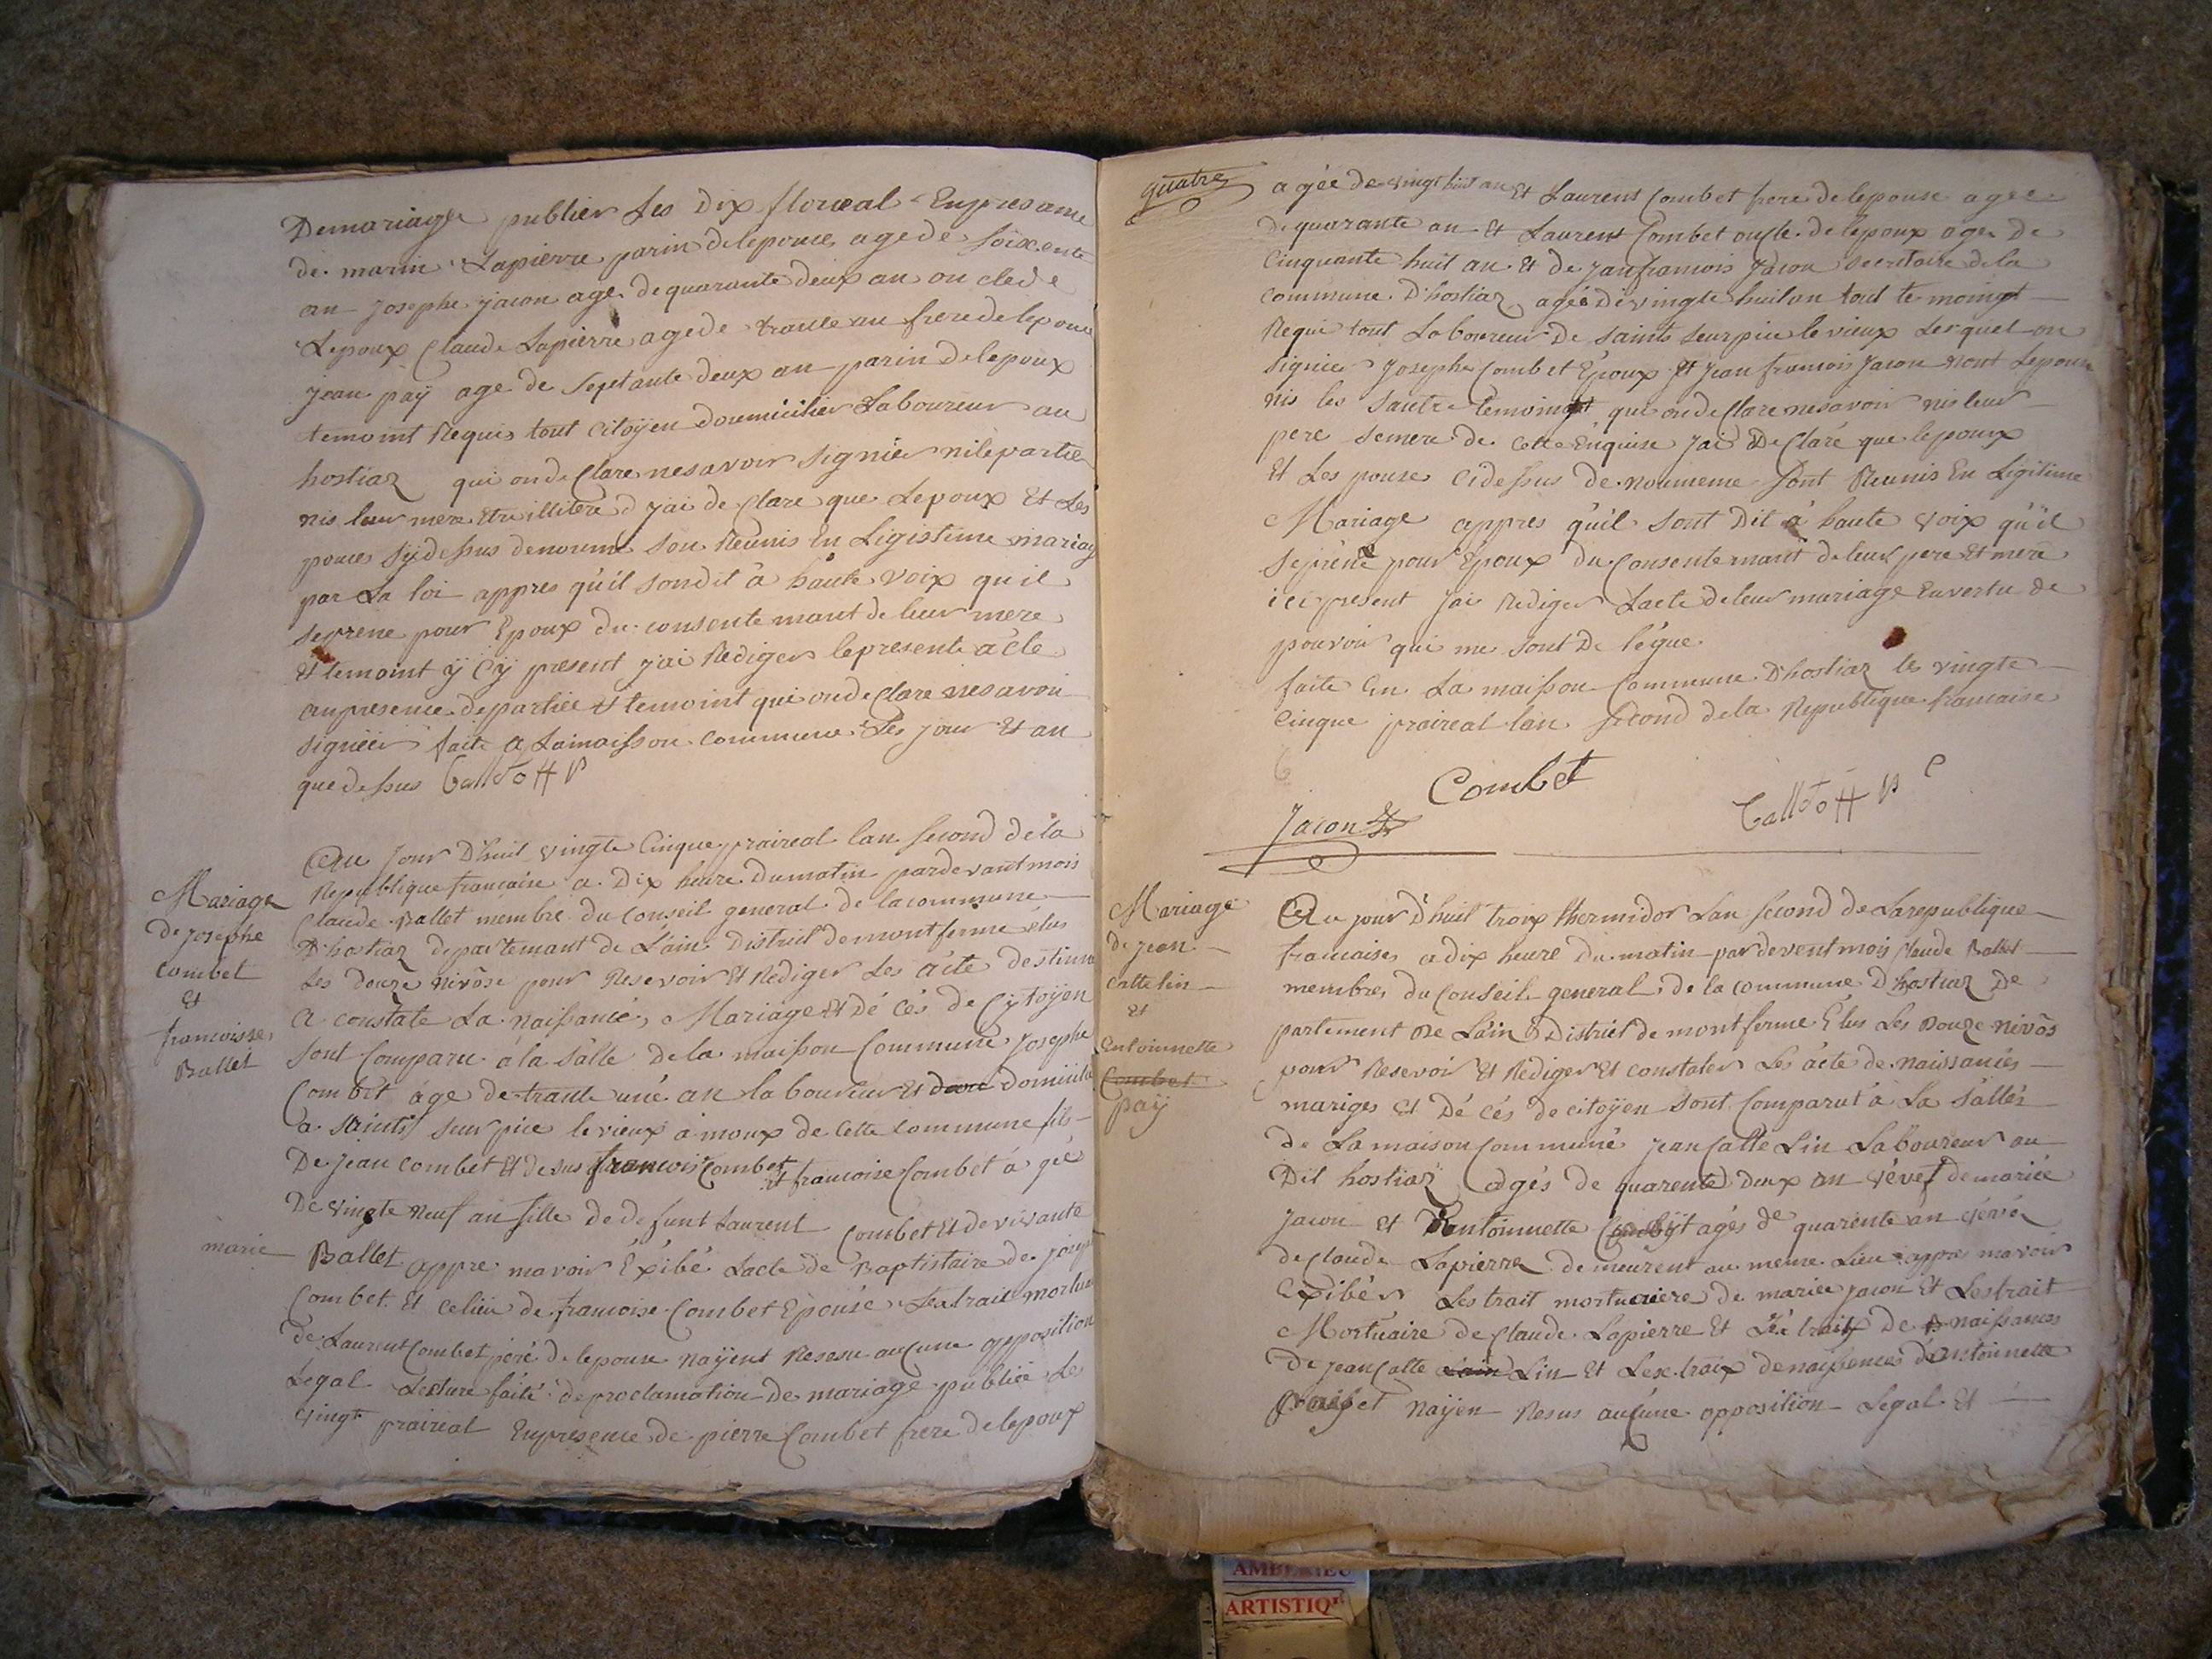 Demariage publier Les Dix floreal Enpresame
de marin Lapierre parin delepouse agede soixente
an Josephe jacon age de quarante deux an on cle de
Lepoux Claude Lapierre agede trante an frere de lepouse
jean paÿ age de Septante deux an parin delepoux
temoint Requis tout Citoÿen doumicilier Laboureur au
hostiaz qui onde Clare nesavoir signier nilepartie
nis leur mere Etre illitere jai de Clare que Lepoux Et Les
pouces sÿdessus denoume son Reunis En Ligistime mariag
par La loi appres qu'il sondit à haute voix qu'il
seprene pour Epoux du consentemant de leur mere
Et temoint ÿ Cÿ present j'ai Rediger lepresente acte
enpresence departiee & temoint qui onde Clare nesavoir
signéer faite a Lamaisson commune Les jour Et an
que dessus Ballet off p
Mariage
De Josephe
combet
Et
francoisse
Ballet
Au Jour D'huit vingte Cinque praireal lan second dela
Republique francaise a Dix heure Dumatin pardevantmois
Claude Ballet membre du Conseil general de lacommune
D'hostiaz departemant de L'ain District demontferme élus
Les douze nivôse pour Resevoir Et Rediger Les acte destinne
a constate La naissance, Mariage Et Dé cés de Cÿtoÿen
sont Comparu a la Sâlle Dela maisson Commune Josephe
Combet âge de trante une an laboureur Et domicile
a Saints Surpice levieux a moux de Cette commune fils
De Jean combet Et desus francois Combet Et francoise Combet a gée
De vingte neuf an fille de defunt Laurent Combet Et de vivante
marie Ballet appre mavoir Exibé Lacte de Baptistaire de josep
Combet Et celieu de francoise Combet Epouse Lextrait mortua
de Laurent Combet pere de lepouse naÿent Resesu aucune opposition
Legal Lecture faite de proclamation de mariage publiée Les
vingt praireal Enpresence de pierre Combet frere delepoux
quatre
a gée de vingt huit an Et Laurent Combet frere delepouse agee
dequarante an Et Laurent Combet oncle delepoux age De
Cinquante huit an Et de Janfrancois Jacon secretaire dela
commune D'hostiaz agée De vingte huit an tout temoingt
Requi tout Laboureur De saints Seurpice levieux Lesquel on
signier Josephe Combet Epoux Et Jean francois Jacon nont Lepouse
nis les sautre temoingt qui onde Clare nesavoir nis leur
pere semere de Cette Enquise Jai DeClaré que lepoux
Et Les pouse Cidessus de noumeme sont Reunis En Ligitime
Mariage appres qu'il sont Dit à haute voix qu'il
seprene pour Epoux du Consentemant de leur pere Et mere
ici present jai Rediger Lacte deleur mariage Envertu de
pouvoir qui me sont De légue
faite En La maisson Commune D'hostiaz le vingte
Cinque praireal lan second dela Republique francaise
Combet
Jacon
Ballet off p
Mariage
de jean
cattelin
Et
Entoinnette
Combet
paÿ
Au jour D'huit troix thermidor Lan second de Larepublique
francaises a dix heure du matin par devent mois Claude Ballet
membres du Conseil general de la commune D'hostiaz De
partement De L'ain District de montferme Elus Les Douze nivôs
pour Resevoir Et Rediger Et constater Les acte de naissances
mariges Et Dé cés de citoÿen sont Comparut à La salles
de La maison Commune jean Catte Lin Laboureur au
Dit hostiaz agés de quarente Deux an vévef demariée
Jacon Et Dentoinnette agés de quarente an vévée
de Claude Lapierre demeurent au meme Lieu appres mavoir
Exibér Lestrait mortucriere de mariee jacon Et Lestrait
Mortuaire de Claude Lapierre Et Léx traits de naissances
De jean Catte Lin Et Lex traix denaissences dentoinnette
naÿen Resus aucune opposition Legal Et
AMBERIEU
ARTISTIQ